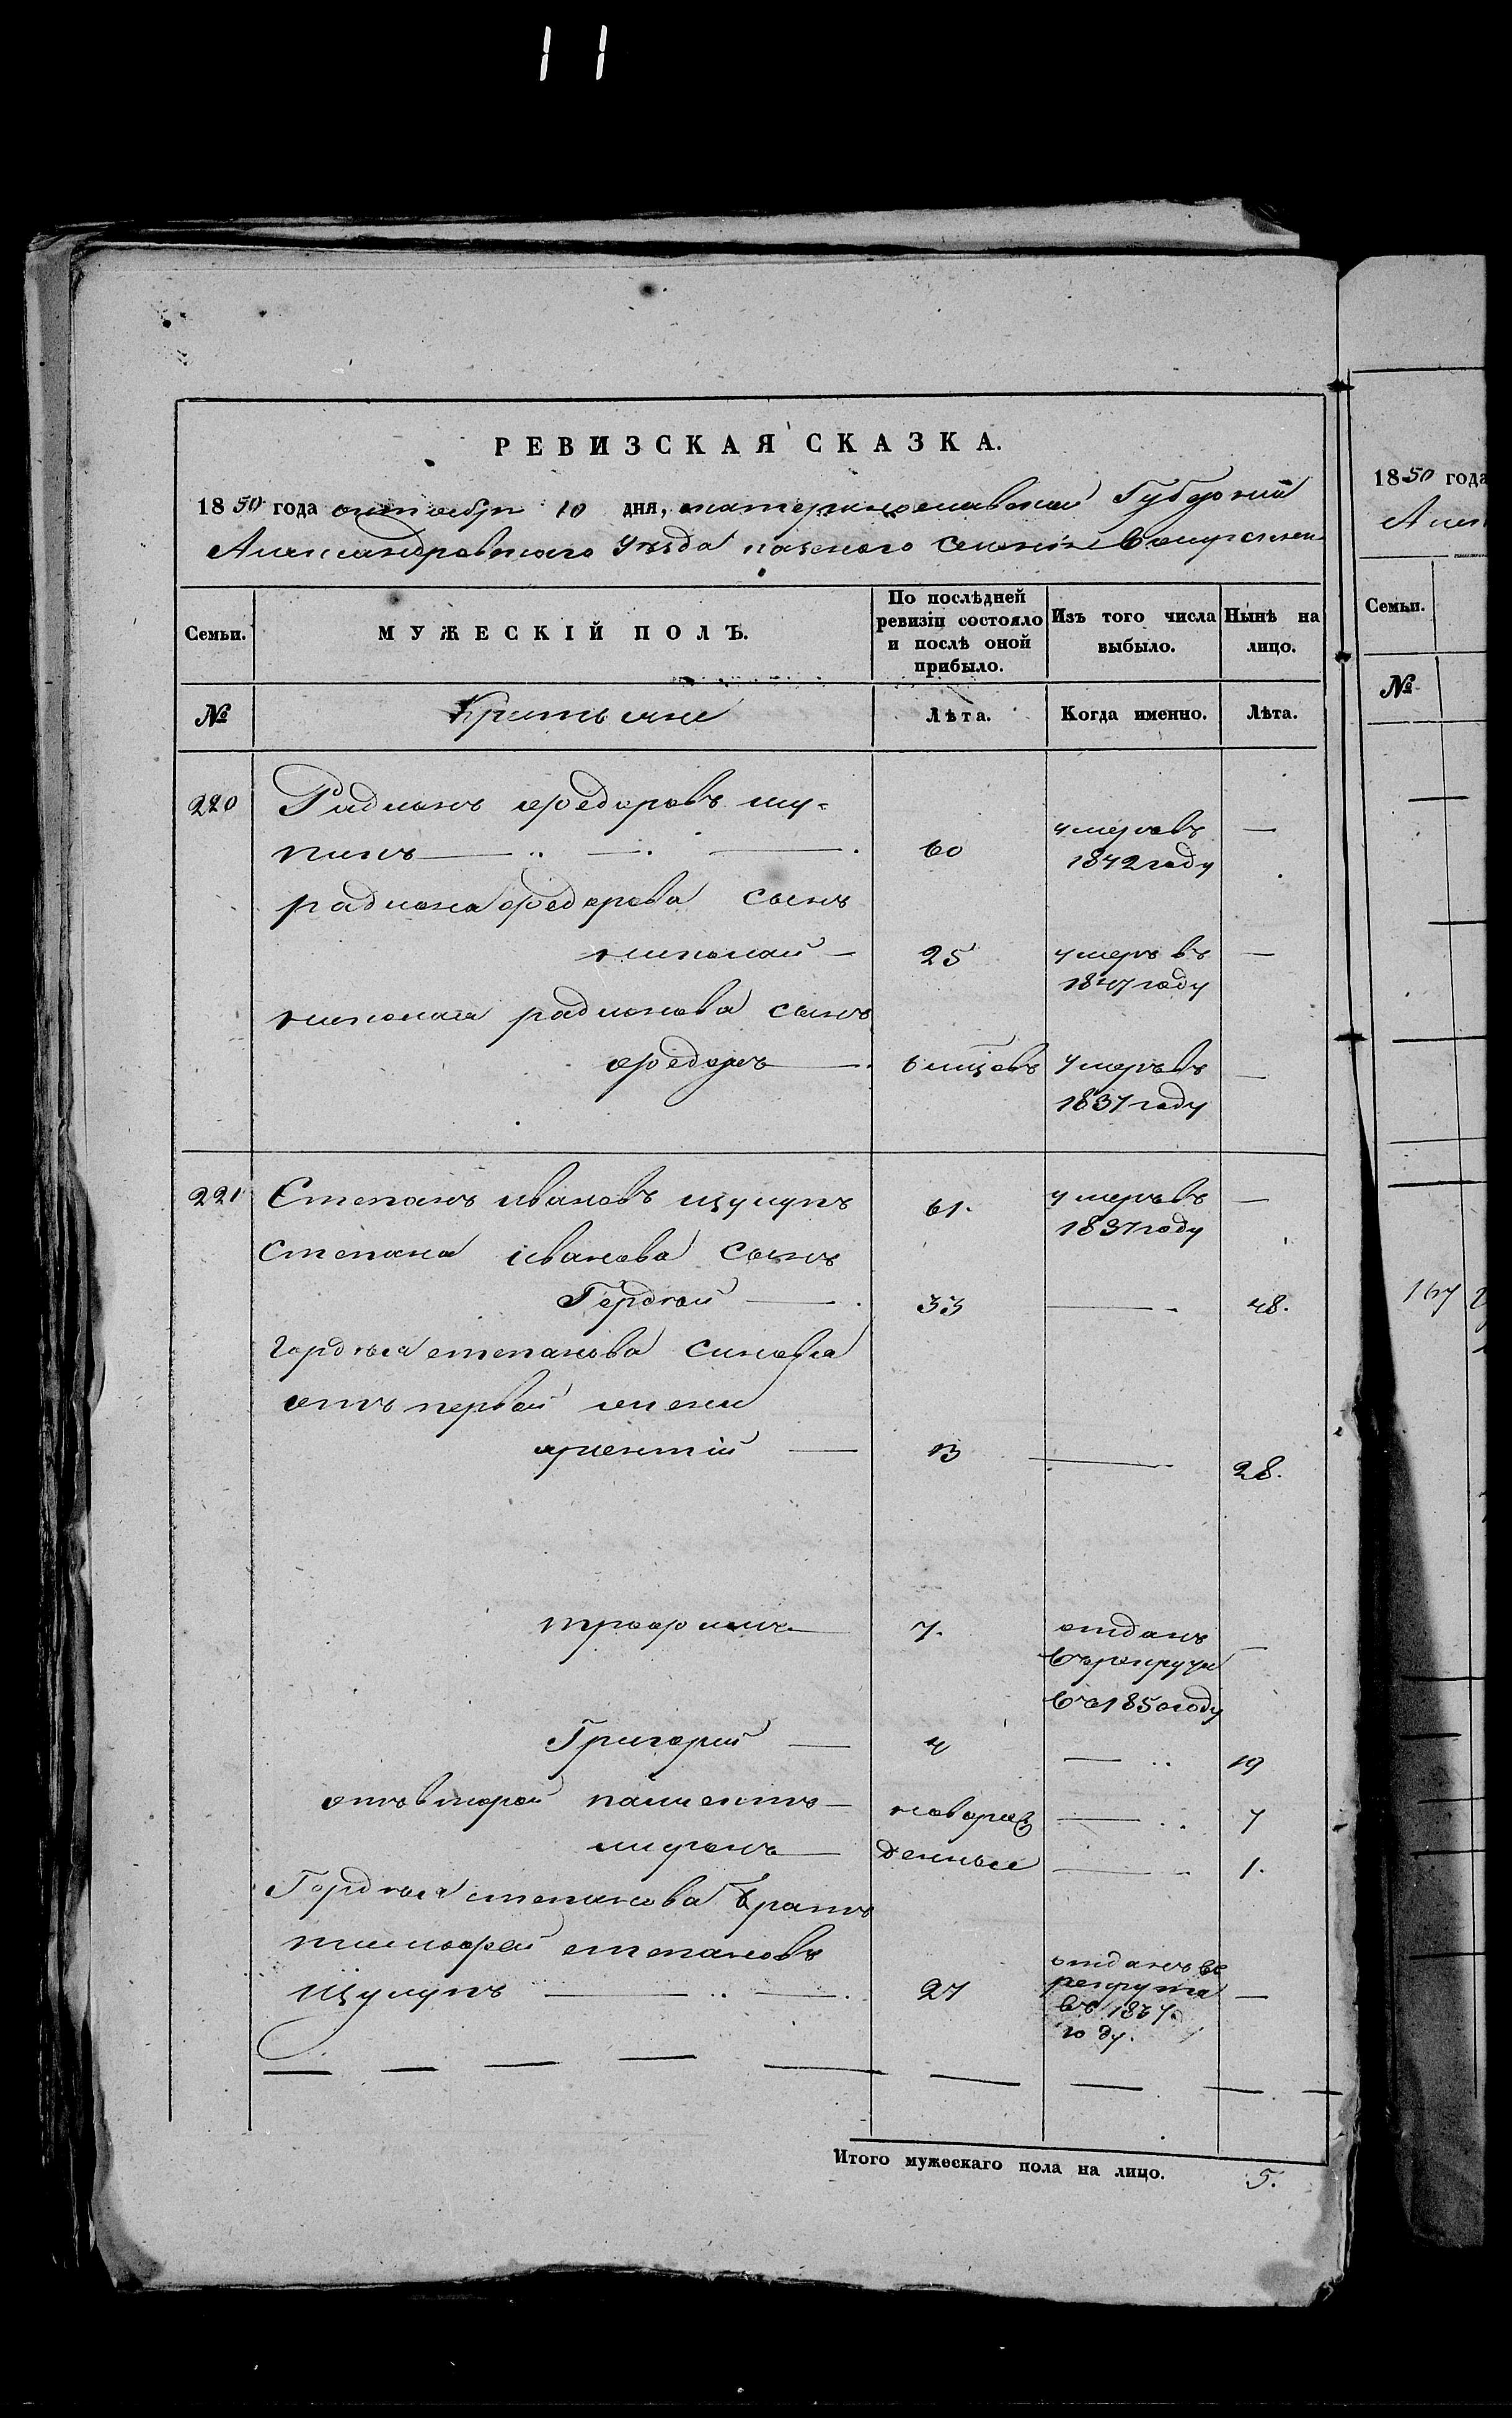 РЕВИЗСКАЯ СКАЗКА.
1850 года октября 10 дня, екатеринославской Губерний
Александровского Уезда казеного селенія
Семьи.
МУЖЕСКІЙ ПОЛЪ.
По послѣдней ревизіи состояло и послѣ оной прибыло.
Изъ того числа выбыло.
Нынѣ на лицо.
№
Крестьяне
Лѣта.
Когда именно.
Лѣта.
220 Радионъ федоровъ
60 умеръ въ 1842 году —
радиона федорова сынъ
николай — 25 умеръ въ 1847 году —
николая радионова сынъ
федоръ — 6 мцовъ умеръ въ 1837 году —
221 Степанъ ивановъ щулупъ 61. умеръ въ 1837 году —
Степана іванова сынъ
Гордѣй — 33 — 48.
Гордѣя степанова синовья
отъ первой жени
— 13 — 28.
трофимъ — 7. отданъ въ рекруты въ 1850 году —
Григорий — 4 — 19
отъ второй — новорож — 7
— денные — 1.
Гордѣя степанова братъ
тимофей степановъ
Щулупъ — 27 отданъ въ рекрута въ 1837. году. —
Итого мужескаго пола на лицо. 5.
1850 года
Семьи.
№
167